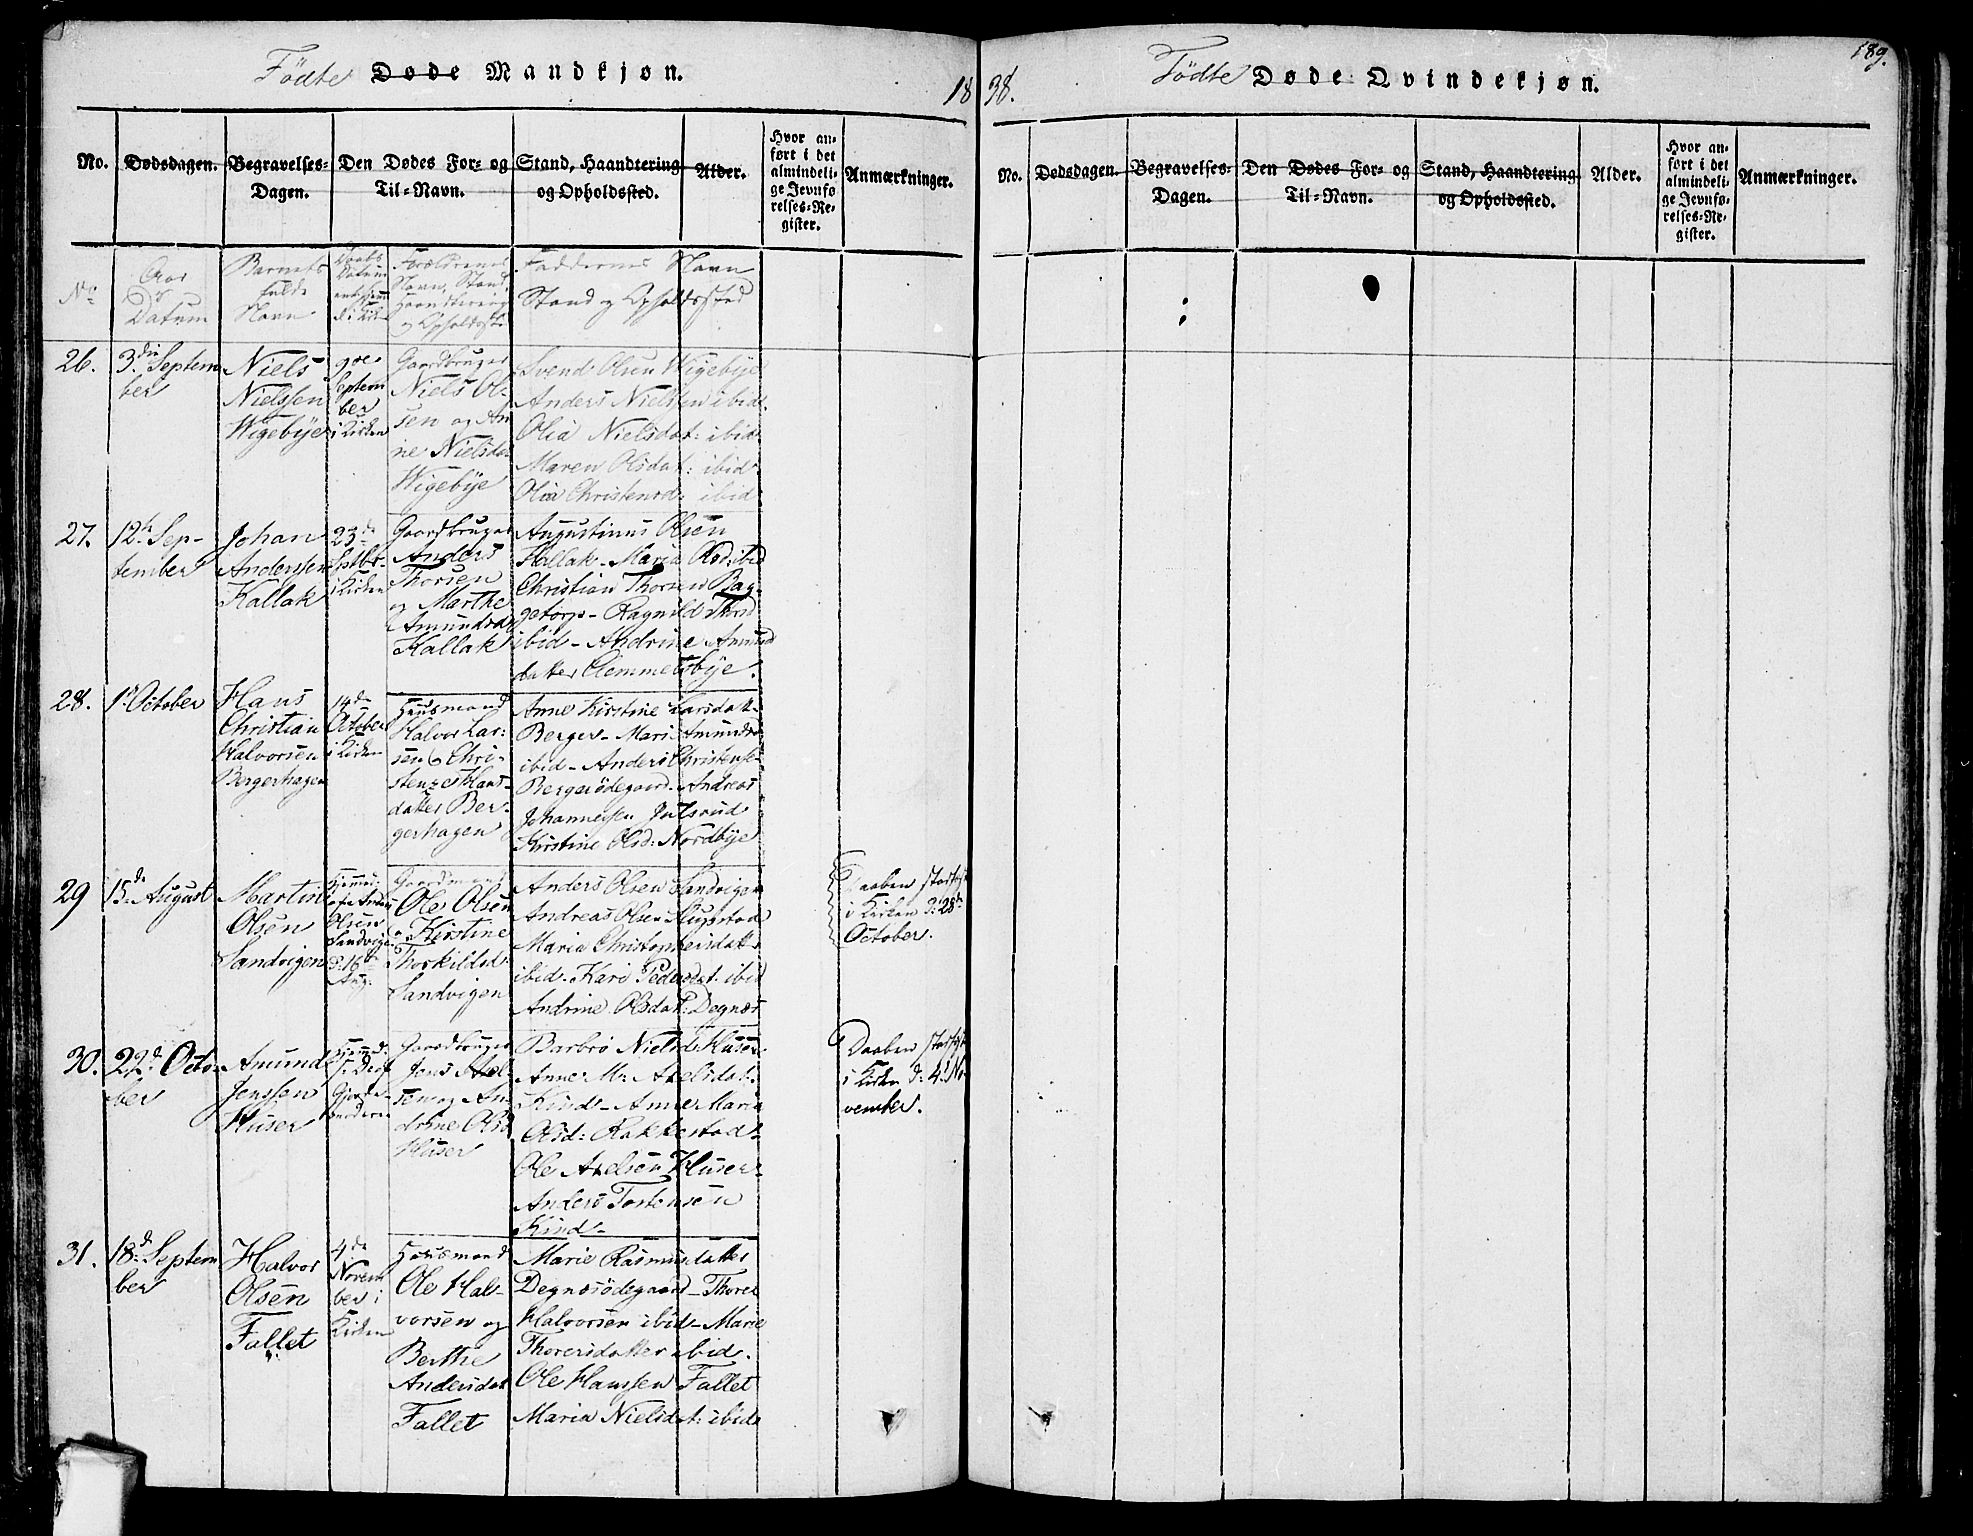 Födte Døde Mandkjøn.
18
No.
Dødsdagen.
Begravelses-
Dagen.
Den Dødes For- og
Til-Navn.
Stand, Haandtering
og Opholdssted.
Alder.
Hvor an-
ført i det
almindeli-
ge Jevnfø-
relses-Re-
gister.
Anmærkninger.
No
Aar
og
Datum
Barnets
fulde
Navn
Daabs
Datum
Forældrenes
Navn, Stand,
Haandtering
og Opholdsste
Faddernes Navn
Stand og Opholdssted
26.
3die Septem
ber
Niels
Nielssen
Wigebye
9de
Septem
ber
i Kirken
Gaardbruger
Niels Ol-
sen og An
ne Nielsdat
Wigebye
Svend Olsen Wigebye
Anders Nielssen ibid.
Olia Nielsdat: ibid
Maren Olsdat: ibid
Olia Christensd: ibid
27.
12te Sep-
tember
Johan
Anderssen
Kallak
23de
Septbr
i Kirken
Gaardbruger
Anders
Thorsen
og Marthe
Amundsd
Kallak
Augustinus Olsen
Kallak - Maria Olsd: ibid
Christian Thorsen Bag-
getorp - Ragnild Thorsd
ibid - Andrine Amund
datter Clemmetsbye.
28.
1ste October
Hans
Christian
Halvorsen
Bergerhagen
14de
October
i Kirken
Huusmand
Halvor Lar-
sen & Chri-
stenze Hans-
datter Ber-
gerhagen
Anne Kirstine Larsdat-
Berger - Mari Amundsd
ibid - Anders Christense-
Bergerödegaard - Andreas
Johannessen Julsrud
Kirstine Olsd: Nordbye
29
15de August
Martin
Olsen
Sandvigen
Hjemmed:
af Anders
Olsen
Sandvigen
d: 16de
Aug:
Gaardmand
Ole Olsen
og Kirstine
Thorkildsd
Sandvigen
Anders Olsen Sandvigen
Andreas Olsen Sluppstad
Maria Christophersdatt
ibid - Kari Pedersdat: ibid
Andrine Olsdat: Degnæs
Daaben stadfæst
i Kirken d: 28de
October.
30.
22de Octo-
ber
Amund
Jenssen
Huser
Hjemmed:
Gaardbruger
Jens Axel-
sen og An-
drine Olsd
Huser
Barbro Nielsd: Huser
Anne M: Axelsdat:
Kind - Anne Maria
Olsd: Rakkestad -
Ole Axelsen Huser -
Anders Torstensen
Kind -
Daaben stadfæst
i Kirken d: 4de No
vember.
31.
18de Septem
ber
Halvor
Olsen
Fallet
4de
Novem
ber i
Kirken
Huusmand
Ole Hal-
vorsen og
Berthe
Andersdat
Fallet
Marie Rasmusdatter
Degnæsödegaard - Thorer
Halvorsen ibid - Marie
Thorersdatter ibid.
Ole Hanssen Fallet
Maria Nielsdat: ibid
189.
38.
Födte Døde Qvindekjøn.
No.
Dødsdagen.
Begravelses-
Dagen.
Den Dødes For- og
Til-Navn.
Stand, Haandtering
og Opholdssted.
Alder.
Hvor an-
ført i det
almindeli-
ge Jevnfø-
relses-Re-
gister.
Anmærkninger.